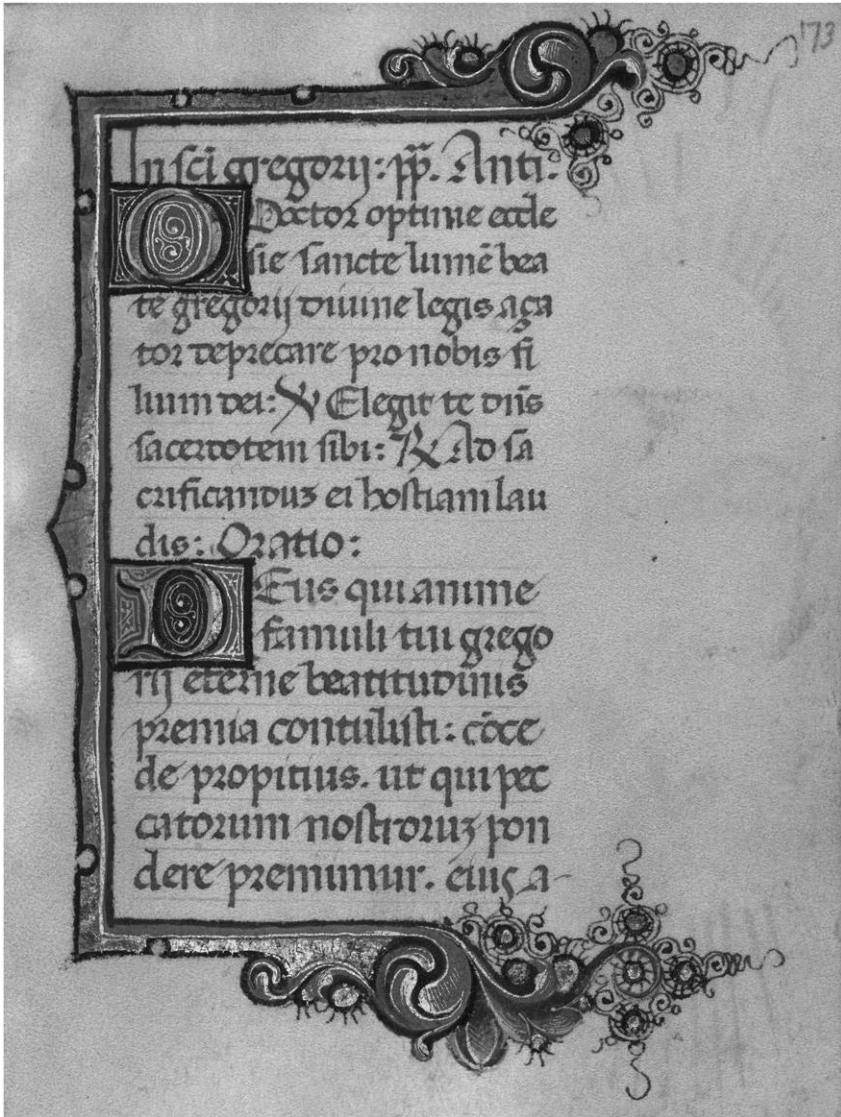 173
In scı̄ gregorij: pp̄. Anti.
O Doctor optime eccle
sie sancte lumē bea
te gregorij diuine legis ama
tor deprecare pro nobis fi
lium dei: ℣ Elegit te dn̄s
sacerdotem sibi: ℟ Ad sa
crificanduz ei hostiam lau
dis: Oratio:
DEus qui anime
famuli tui grego
rij eterne beatitudinis
premia contulisti: cōce
de propitius. ut qui pec
catorum nostroruz pon
dere premimur. eius a